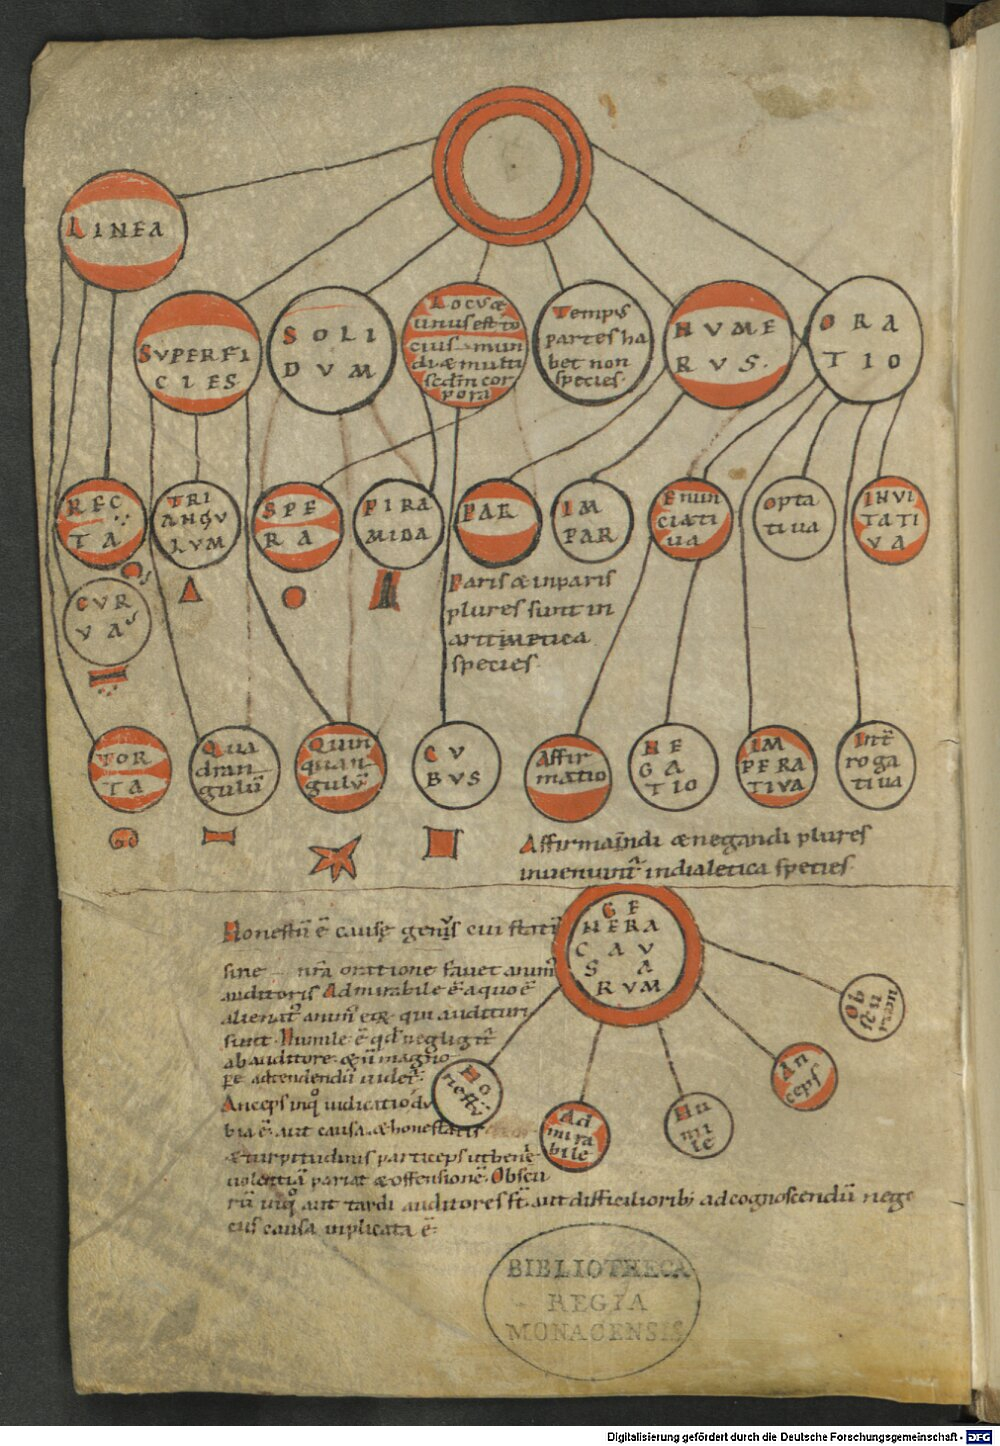 LINEA
SUPERFI
CIES
SOLI
DUM
Locus &
unus est to
cius mun
di & multi
sed in cor
pora
Tempus
partes ha
bet non
species.
NUME
RUS.
ORA
TIO
REC
TA
TRI
ANGU
LUM
SPE
RA
PIRA
MIDA
PAR
IM
PAR
Enun
ciati
ua
opta
tiua
INVI
TATI
VA
CUR
VA
Paris & inparis
plures sunt in
aritmetica
species.
TOR
TA
Qua
dran
gulū
Quin
quan
gulū
CU
BUS
Affir
matio
NE
GA
TIO
IM
PERA
TIVA
Int̄
roga
tiua
Affirmandi & negandi plures
inueniunt̄ in dialetica species.
GE
NERA
CAU
SA
RUM
Honestū ē causę genus cui statī
sine n̄ra oratione fauet animus
auditoris Admirabile ē a quo ē
alienat' anim' eoꝝ qui audituri
sunt. Humile ē qd negligit̄
ab auditore. & ñ magno
pe adtendendū uidet̄.
Anceps inq° iudicatio du
bia ē. aut causa. & honestatis
& turpitudinis particeps ut beni
uolentiā pariat & offensionē. Obscu
rū inq° aut tardi auditores st̄. aut difficilioribꝰ ad cognoscendū nego
ciis causa inplicata ē.
Ho
nestū
Ad
mira
bile
Hu
mi
le
An
ceps
Obscurum
BIBLIOTHECA
REGIA
MONACENSIS
Digitalisierung gefördert durch die Deutsche Forschungsgemeinschaft - DFG